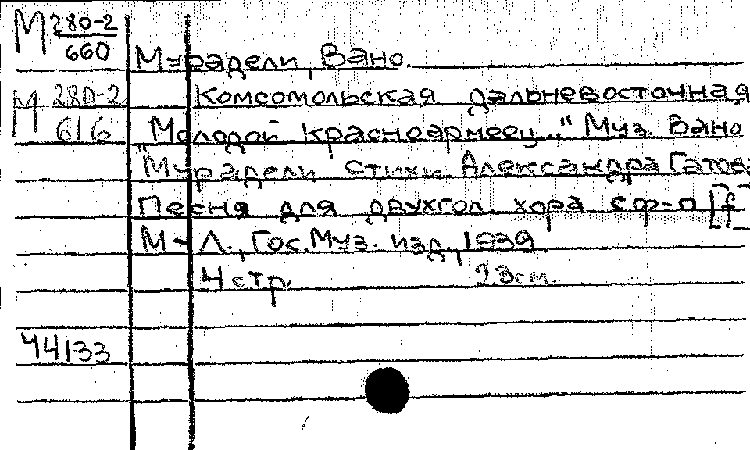 М 280-2
660
Мурадели, Вано.
М 280-2
616
Комсомольская дальневосточная
"Молодой красноармеец..." Муз. Вано
Мурадели Стихи Александра Гатова
Песня для двухгол. хора с ф-п [f
М - Л., Гос. Муз. изд., 1939
4 стр. 23 см.
44133